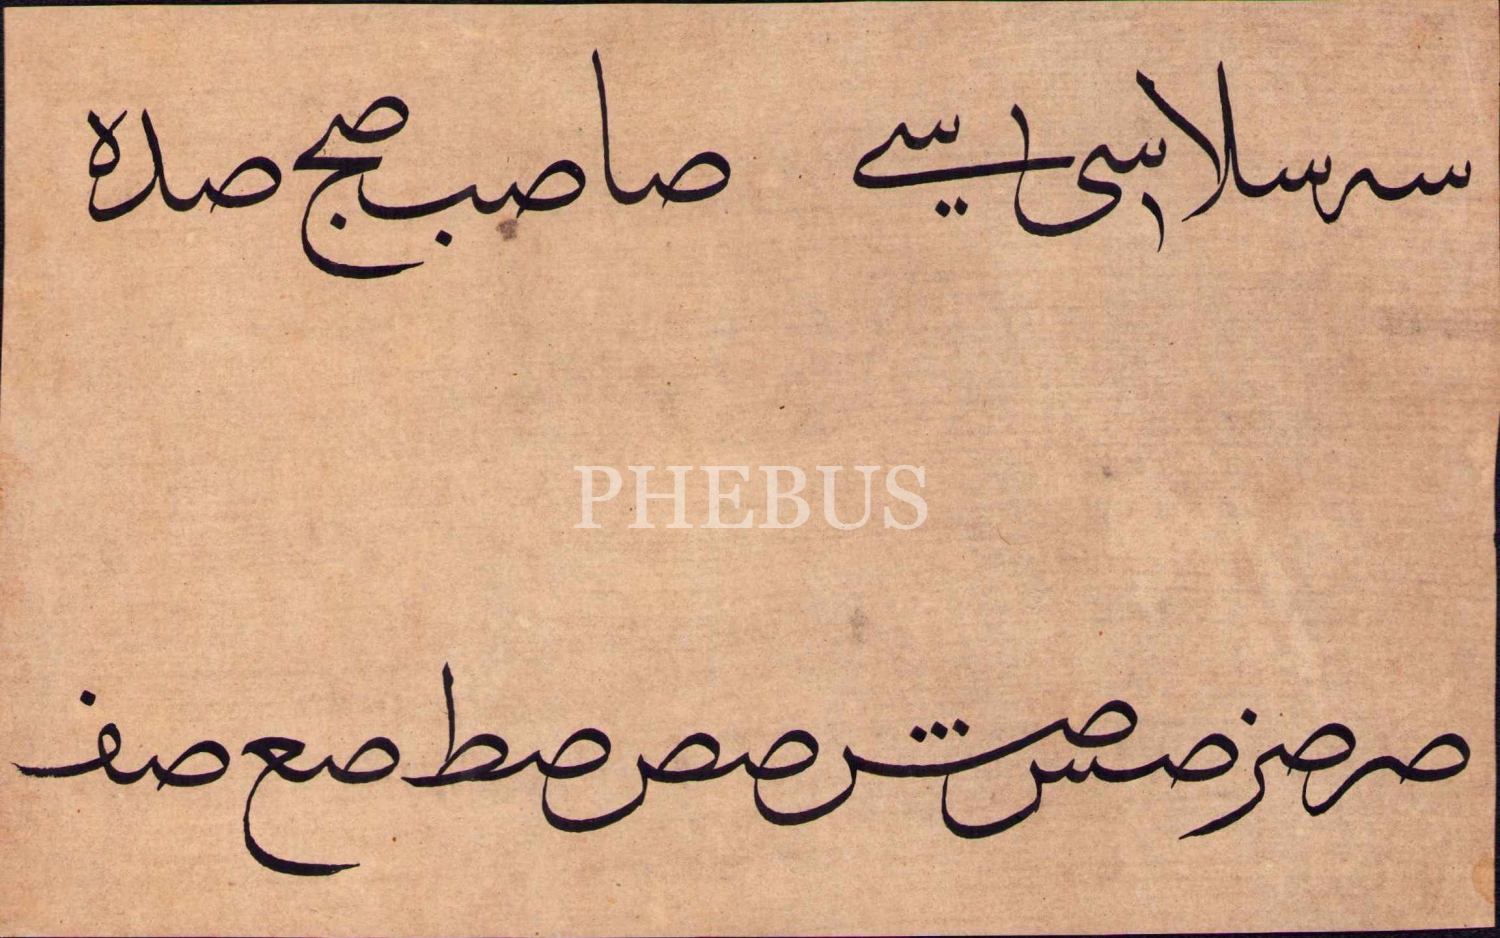 سه سلا سى سے صا صب صج صد صه
PHEBUS
صر صز صس صش صص صط صع صف